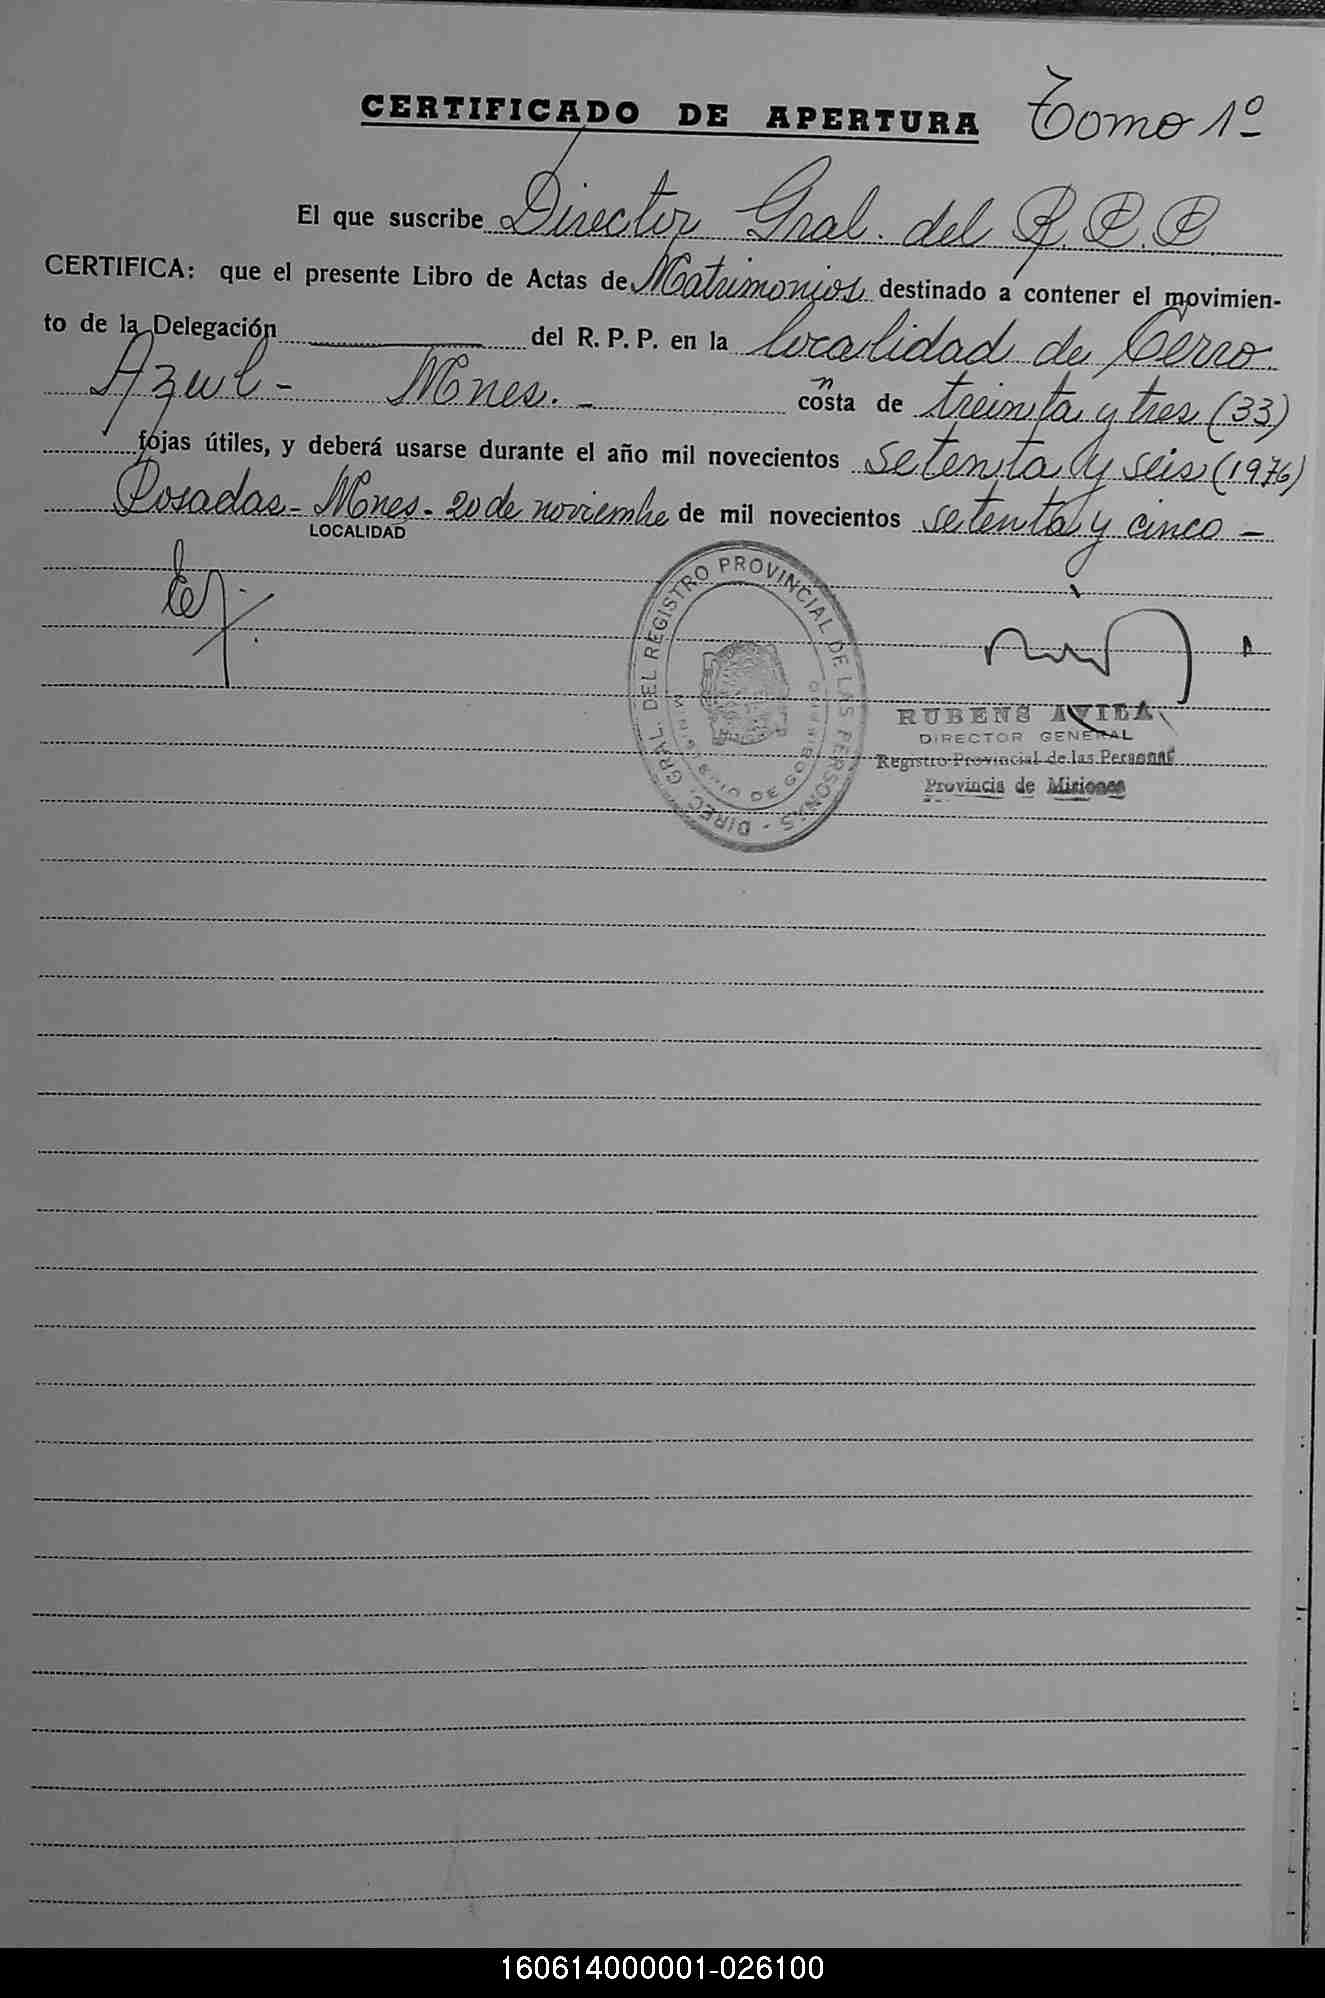 CERTIFICADO DE APERTURA Tomo 1º
El que suscribe Director Gral. del R. P. P
CERTIFICA: que el presente Libro de Actas de Matrimonios destinado a contener el movimien-
to de la Delegación del R. P. P. en la localidad de Cerro
Azul - Mnes. - costa de treinta y tres (33)
n
fojas útiles, y deberá usarse durante el año mil novecientos setenta y seis (1976)
Posadas - Mnes - 20 de noviembre de mil novecientos setenta y cinco -
LOCALIDAD
DIREC. GRAL. DEL REGISTRO PROVINCIAL DE LAS PERSONAS -
RUBENS AVILA
DIRECTOR GENERAL
Registro Provincial de las Personas
Provincia de Misiones
160614000001-026100